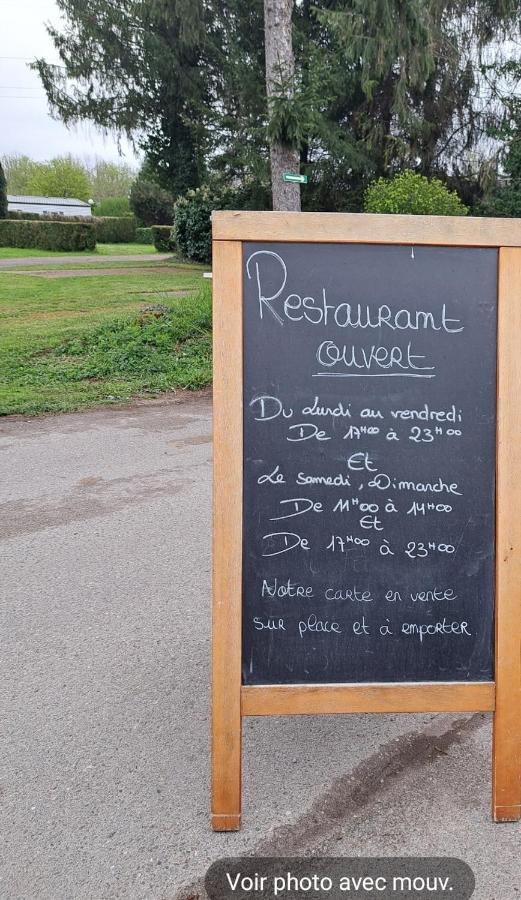 Restaurant
ouvert
Du Lundi au vendredi
De 17H00 à 23H00
Et
Le samedi, Dimanche
De 11H00 à 14H00
Et
De 17H00 à 23H00
Notre carte en vente
sur place et à emporter
Voir photo avec mouv.